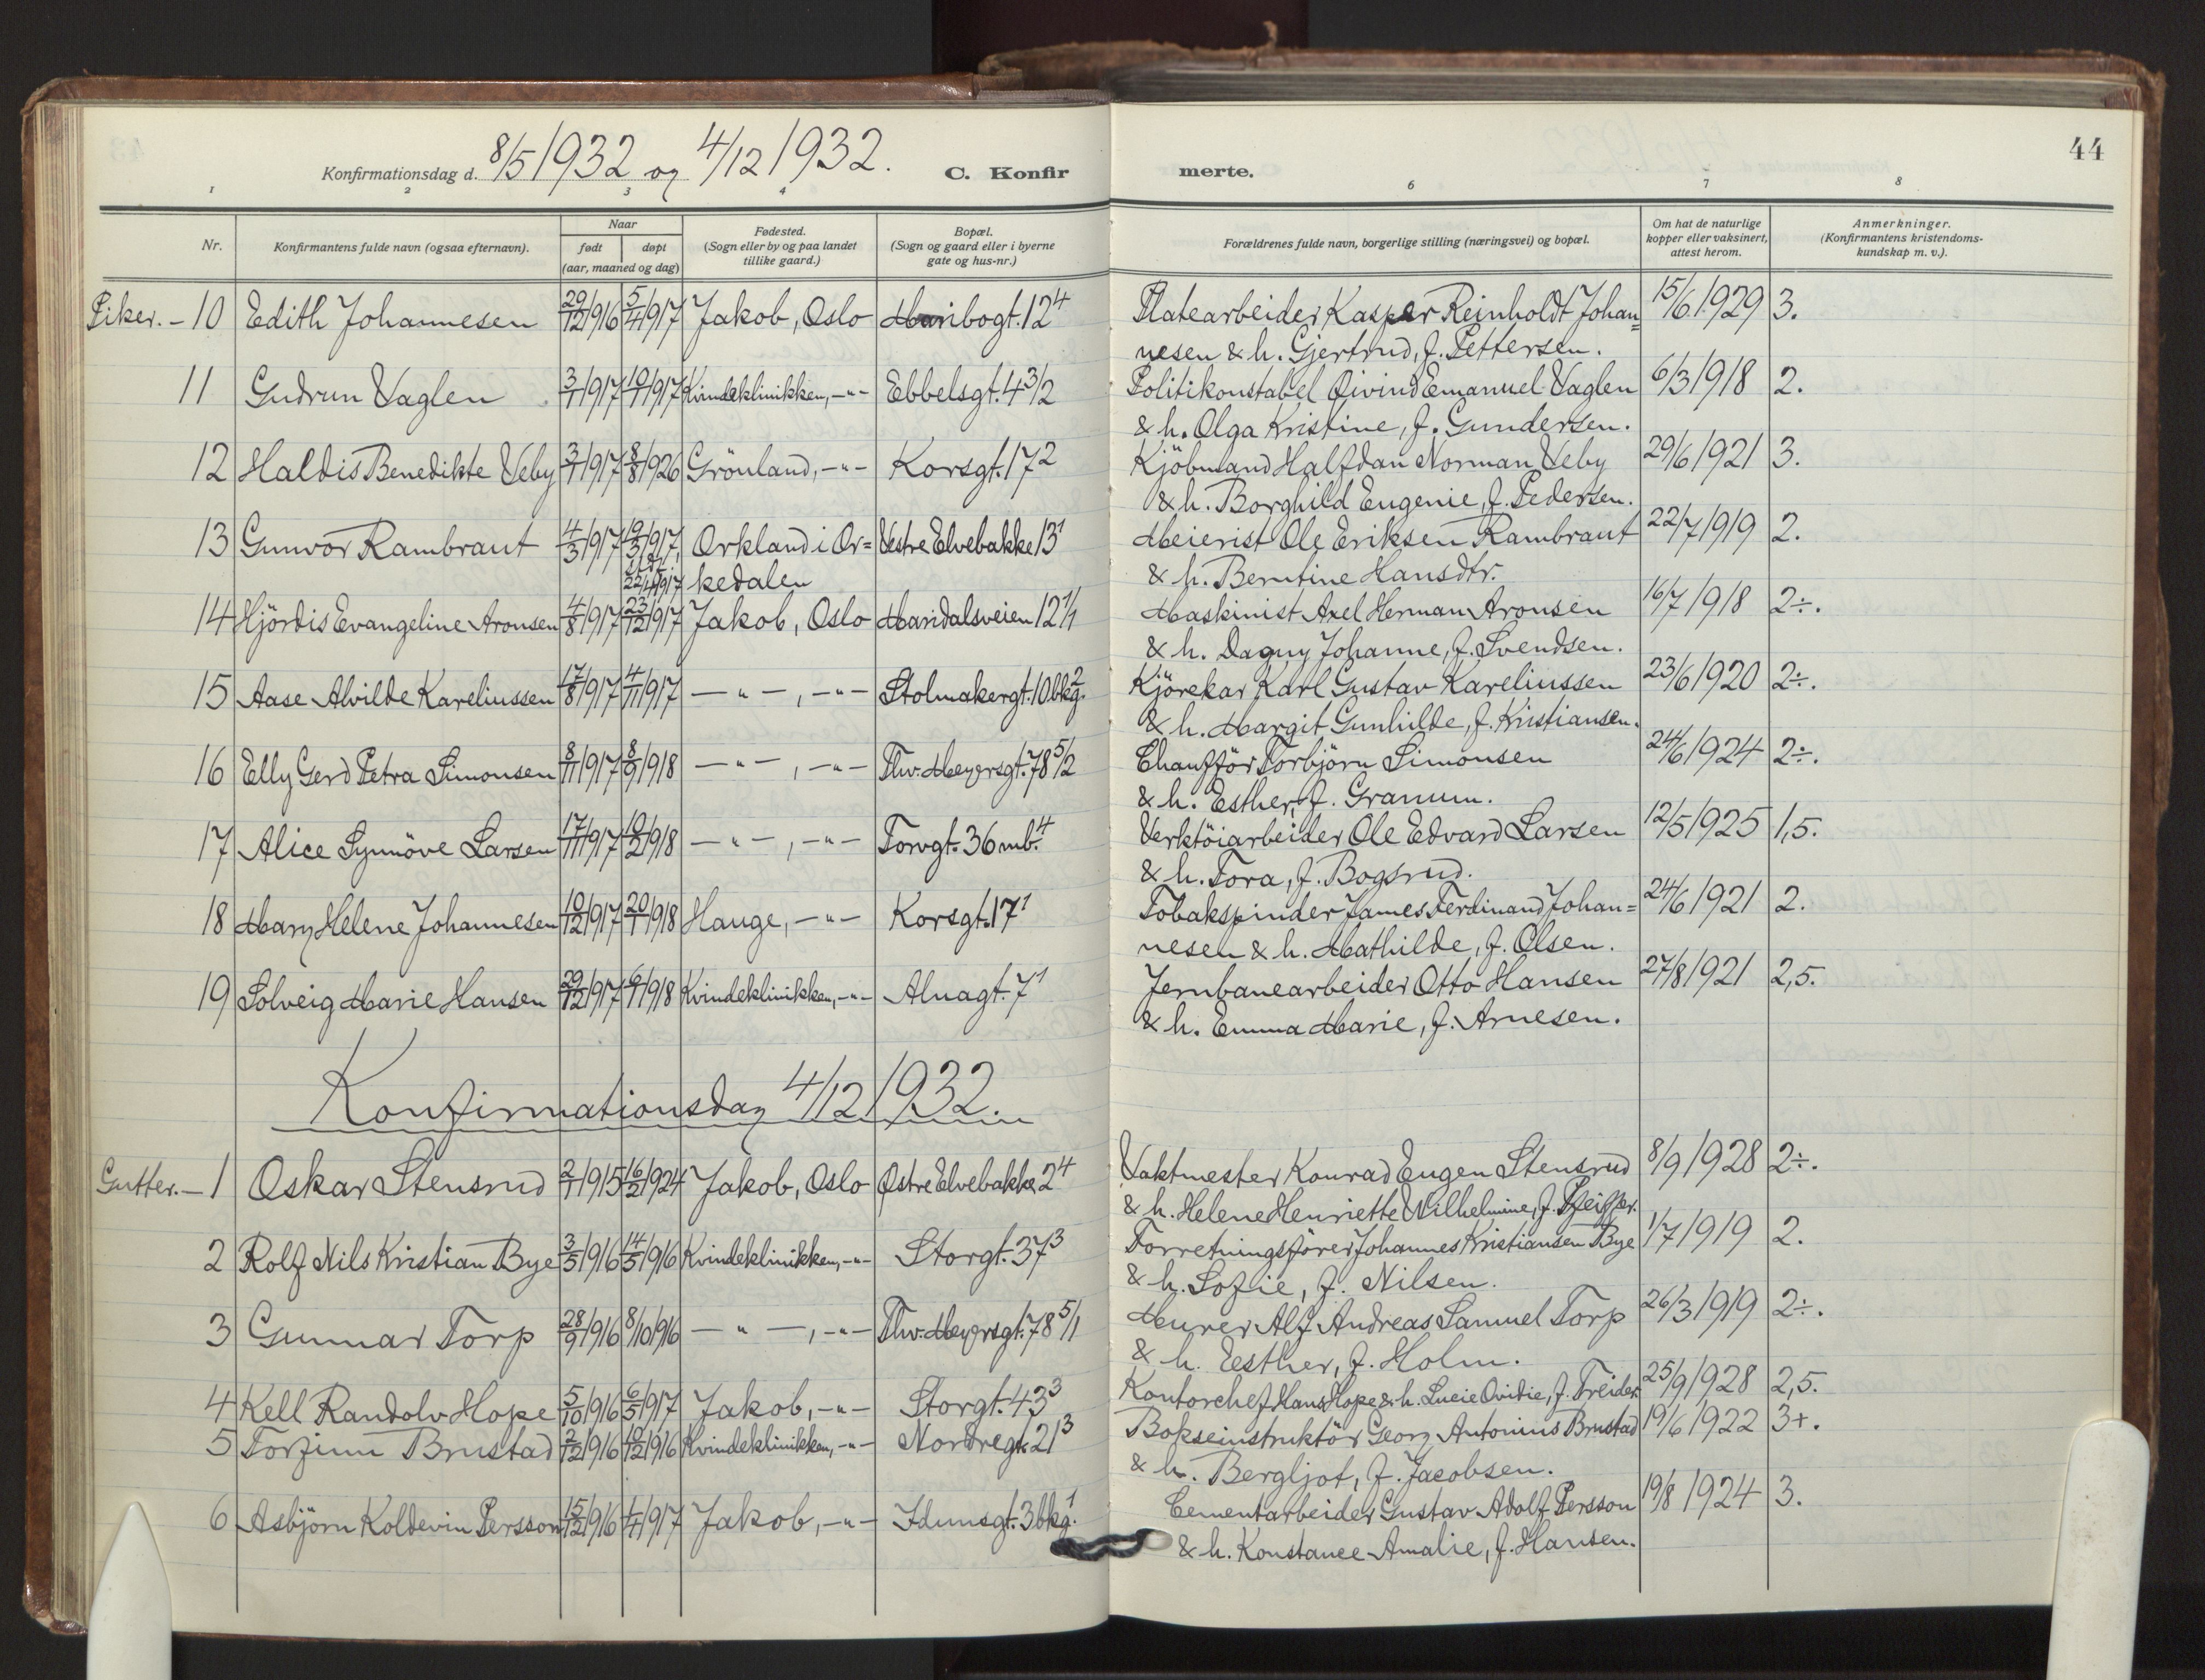 Konfirmationsdag d. 8/5 1932 og 4/12 1932. C. Konfir
merte. 44
1 2 3 4
6 7 8
Nr. Konfirmantens fulde navn (ogsaa efternavn). Naar født døpt (aar, maaned og dag) Fødested. (Sogn eller by og paa landet tillike gaard.) Bopæl. (Sogn og gaard eller i byerne gate og hus-nr.)
Forældrenes fulde navn, borgerlige stilling (næringsvei) og bopæl. Om hat de naturlige kopper eller vaksinert, attest herom. Anmerkninger. (Konfirmantens kristendoms-kundskap m. v.).
Piker. – 10 Edith Johannesen 29/12 1916 5/4 1917 Jakob, Oslo Maribogt. 12⁴ Platearbeider Kasper Reinholdt Johan= 15/6 1929 3.
nesen & h. Gjertrud, f. Pettersen.
11 Gudrun Vaglen 3/1 1917 10/1 1917 Kvindeklinikken, -"- Ebbelsgt. 4 3/2 Politikonstabel Øivind Emanuel Vaglen 6/3 1918 2.
& h. Olga Kristine, f. Gundersen.
12 Haldis Benedikte Veby 3/1 1917 8/8 1926 Grönland, -"- Korsgt. 17² Kjöbmand Halfdan Norman Veby 29/6 1921 3.
& h. Borghild Eugenie, f. Pedersen.
13 Gunvor Rambraut 4/3 1917 19/3 1917, Orkland i Or= Vestre Elvebakke 13¹ Meierist Ole Eriksen Rambraut 22/7 1919 2.
22/4 1917 kedalen & h. Berntine Hansdtr.
14 Hjördis Evangeline Aronsen 4/8 1917 23/12 1917 Jakob, Oslo Maridalsveien 12 1/1 Maskinist Axel Herman Aronsen 16/7 1918 2÷.
& h. Dagny Johanne, f. Svendsen.
15 Aase Alvilde Kareliussen 17/8 1917 4/11 1917 -"-, -"- Stolmakergt. 10 bkg.² Kjörekar Karl Gustav Kareliussen 23/6 1920 2÷.
& h. Margit Gunhilde, f. Kristiansen.
16 Elly Gerd Petra Simonsen 8/11 1917 8/9 1918 -"-, -"- Thv. Meyersgt. 78 5/2 Chauffför Torbjörn Simonsen 24/6 1924 2÷.
& h. Esther, f. Granum.
17 Alice Synnöve Larsen 17/11 1917 10/2 1918 -"-, -"- Torvgt. 36 mb.⁴ Verktöiarbeider Ole Edvard Larsen 12/5 1925 1,5.
& h. Tora, f. Bogsrud.
18 Mary Helene Johannesen 10/12 1917 20/1 1918 Hauge, -"- Korsgt. 17¹ Tobakspinder James Ferdinand Johan= 24/6 1921 2.
nesen & h. Mathilde, f. Olsen.
19 Solveig Marie Hansen 29/12 1917 6/1 1918 Kvindeklinikken, -"- Alnagt. 7¹ Jernbanearbeider Otto Hansen 27/8 1921 2,5.
& h. Emma Marie, f. Arnesen.
Konfirmationsdag 4/12 1932.
Gutter. – 1 Oskar Stensrud 2/1 1915 16/2 1924 Jakob, Oslo Østre Elvebakke 2⁴ Vaktmester Konrad Eugen Stensrud 8/9 1928 2÷.
& h. Helene Henriette Wilhelmine, f. Pfeiffer.
2 Rolf Nils Kristian Bye 3/5 1916 14/5 1916 Kvindeklinikken, -"- Storgt. 37³ Forretningsförer Johannes Kristiansen Bye 1/7 1919 2.
& h. Sofie, f. Nilsen.
3 Gunnar Torp 28/9 1916 8/10 1916 -"-, -"- Thv. Meyersgt. 78 5/1 Murer Alf Andreas Samuel Torp 26/3 1919 2÷.
& h. Esther, f. Holm.
4 Kell Randolv Hope 5/10 1916 6/5 1917 Jakob, -"- Storgt. 43³ Kontorchef Hans Hope & h. Lucie Ovidie, f. Treider. 25/9 1928 2,5.
5 Torfinn Brustad 2/12 1916 10/12 1916 Kvindeklinikken, -"- Nordregt. 21³ Bokseinstruktör Georg Antonius Brustad 19/6 1922 3+.
& h. Bergljot, f. Jacobsen.
6 Asbjörn Koldevin Persson 15/12 1916 1/4 1917 Jakob, -"- Idunsgt. 3 bkg.¹ Cementarbeider Gustav Adolf Persson 19/8 1924 3.
& h. Konstance Amalie, f. Hansen.